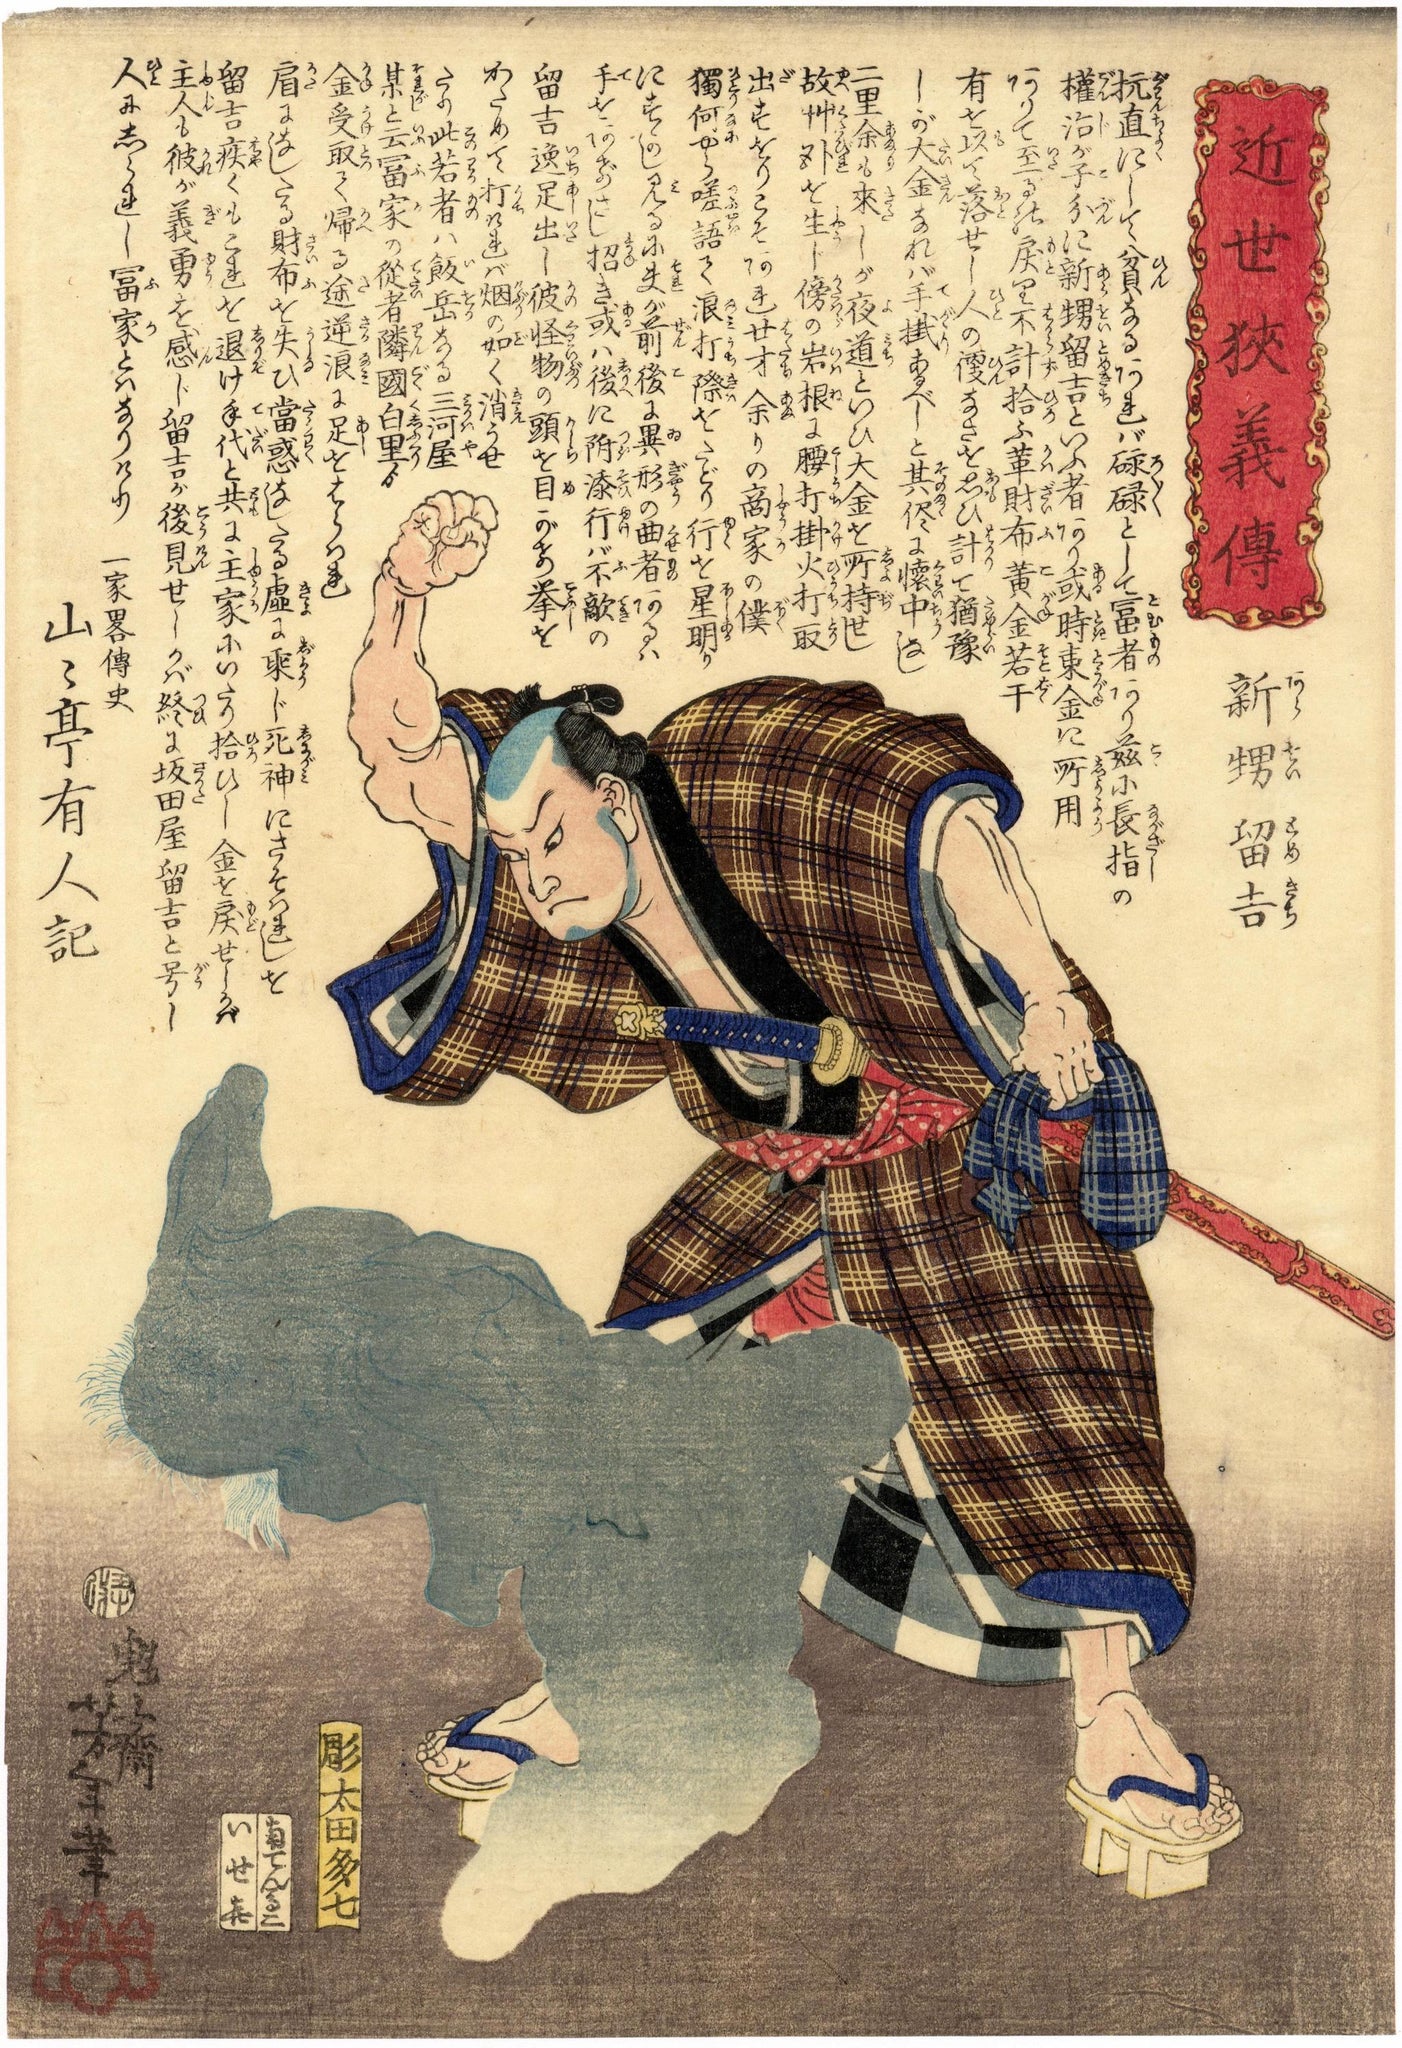 近世侠義傳
新甥留吉
抗直にして貧なるあれバ碌碌として冨者あり茲に長指の
權治が子分に新甥留吉といふ者あり或時東金に所用
ありて至る
戻り不計拾ふ革財布黄金若干
有を以て落せし人の
計て猶豫
しが大金なれバ手掛もあるべしと其侭に懐中なし
二里余も來しが夜道といひ大金を所持せ
故
を生じ傍の岩根に腰打掛火打取
出
廿才余りの商家の僕
獨何やら囈語て浪打際をたどり行を星明り
にすかし見るに夫が前後に異形の曲者あるハ
手を
招き或ハ後に附添行バ不敵の
留吉逸足出し彼怪物の頭を目がけ拳を
かためて打けれバ烟の如く消うせ
たり此若者ハ飯岳なる三河屋
某と云冨家の從者隣國白里より
金受取て帰る途逆浪に足をとられ
肩になしたる財布を失ひ當惑なしたる虚に乘じ死神にさそハれしを
留吉疾くもこれを退け手代と共に主家にいたり拾ひし金を戻せしかば
主人も彼が義勇を感じ留吉が後見せしかバ終に坂田屋留吉と号し
人にしられし冨家とハなりけり
一家畧傳史
山々亭有人記
魁斎芳年筆
彫太田多七
いせ喜